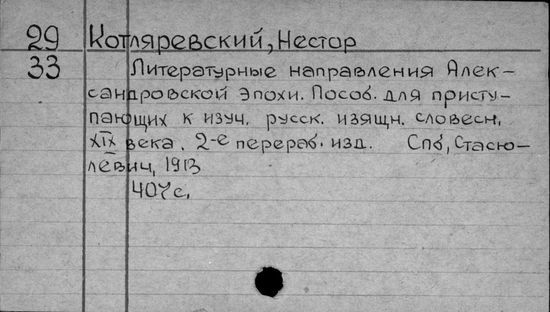 29 Котляревский, Нестор
33 Литературные направления Алек-
сандровской эпохи. Пособ. для присту-
пающих к изуч. русск. изящн. словесн.
XIX века. 2-е перераб. изд. Спб, Стасю-
левич, 1913
407 с.